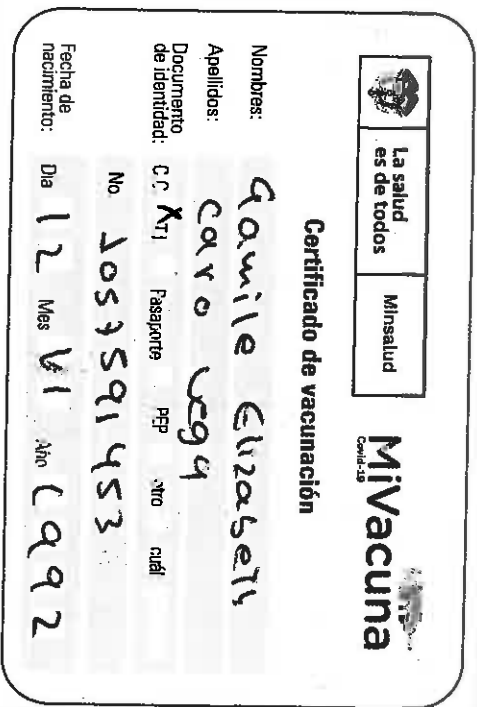 La salud
es de todos
Minsalud
MiVacuna
Covid-19
Certificado de vacunación
Nombres: Gamile Elizabeth
Apellidos: Caro Vega
Documento
de identidad: C.C X T.I Pasaporte PEP otro cuál
No. 1057591453
Fecha de
nacimiento: Dia 12 Mes VI Año 1992